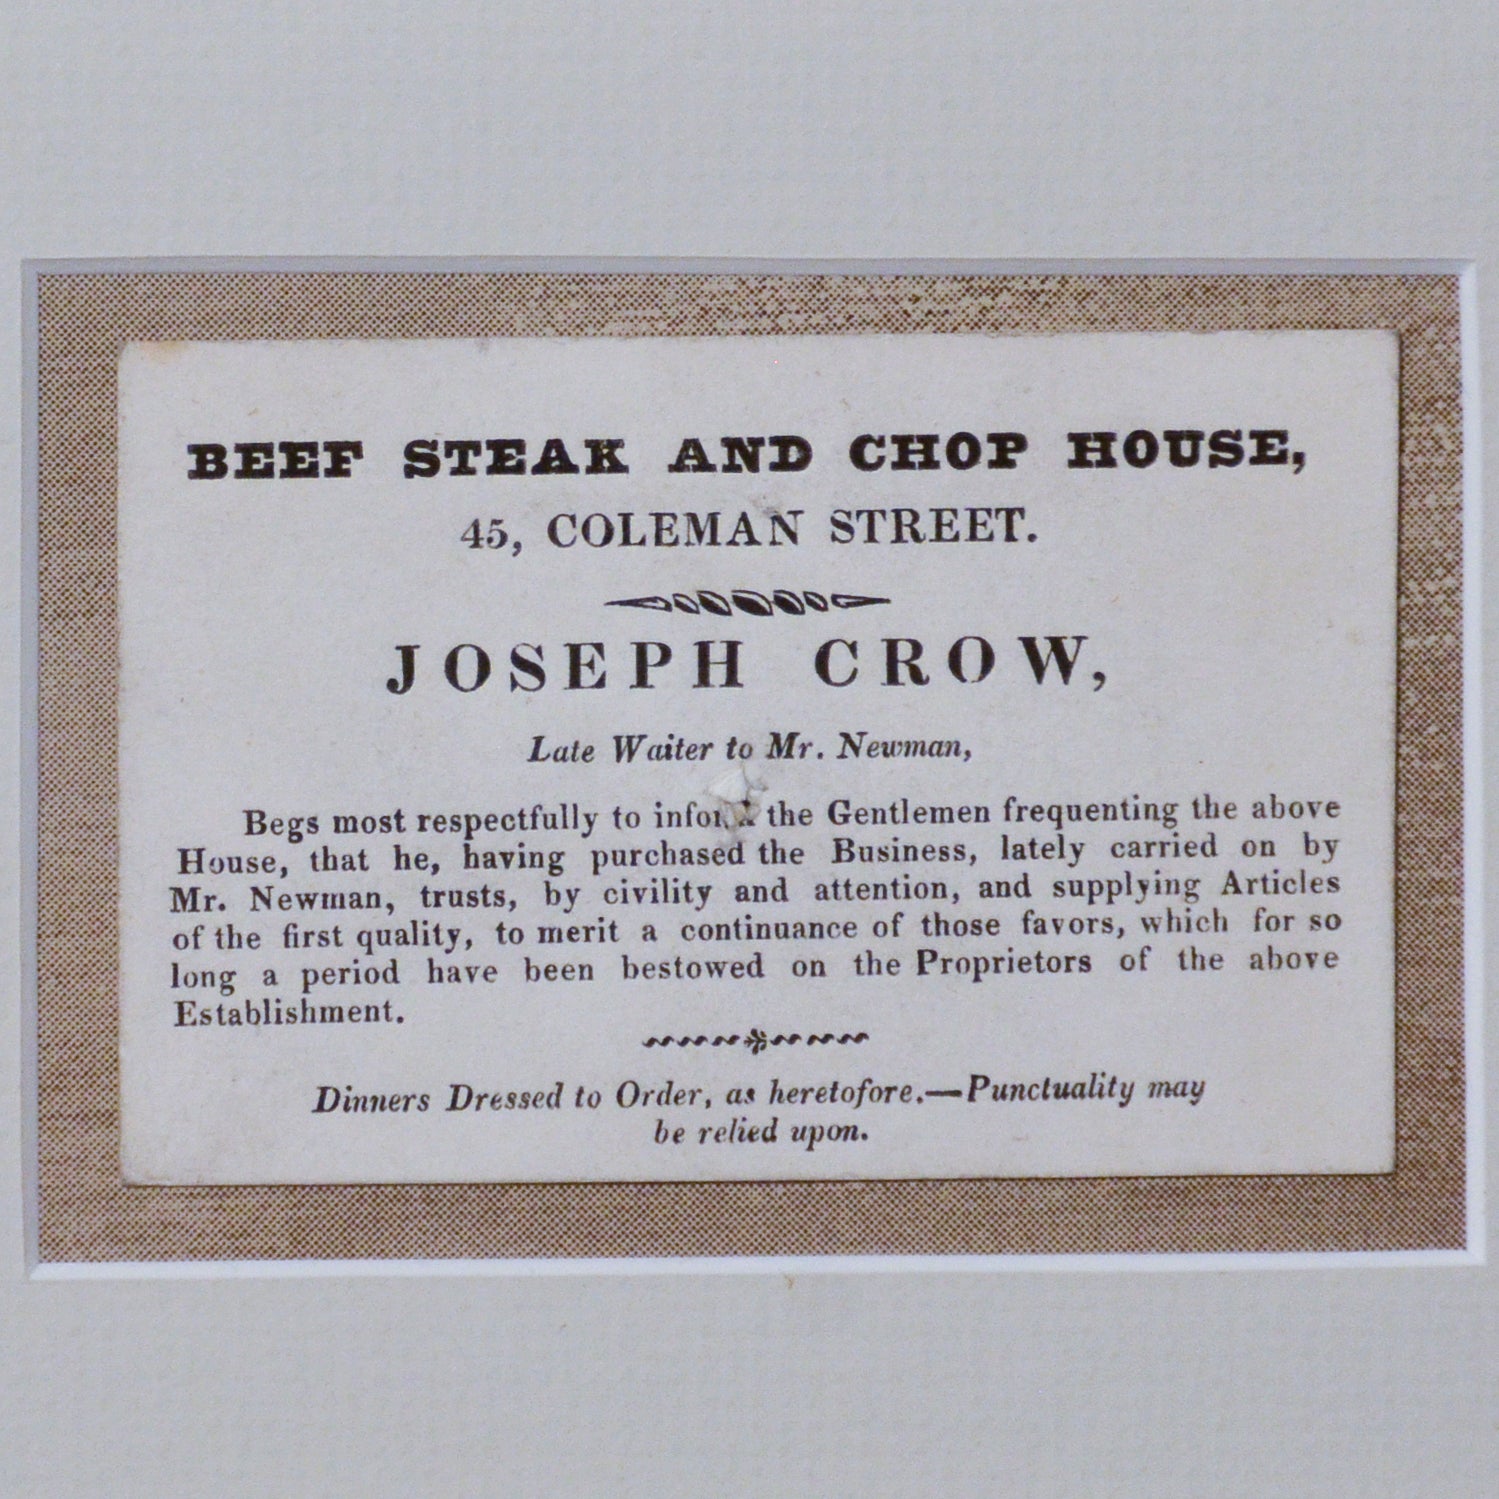 BEEF STEAK AND CHOP HOUSE,
45, COLEMAN STREET.
JOSEPH CROW,
Late Waiter to Mr. Newman,
Begs most respectfully to inform the Gentlemen frequenting the above
House, that he, having purchased the Business, lately carried on by
Mr. Newman, trusts, by civility and attention, and supplying Articles
of the first quality, to merit a continuance of those favors, which for so
long a period have been bestowed on the Proprietors of the above
Establishment.
Dinners Dressed to Order, as heretofore.—Punctuality may
be relied upon.